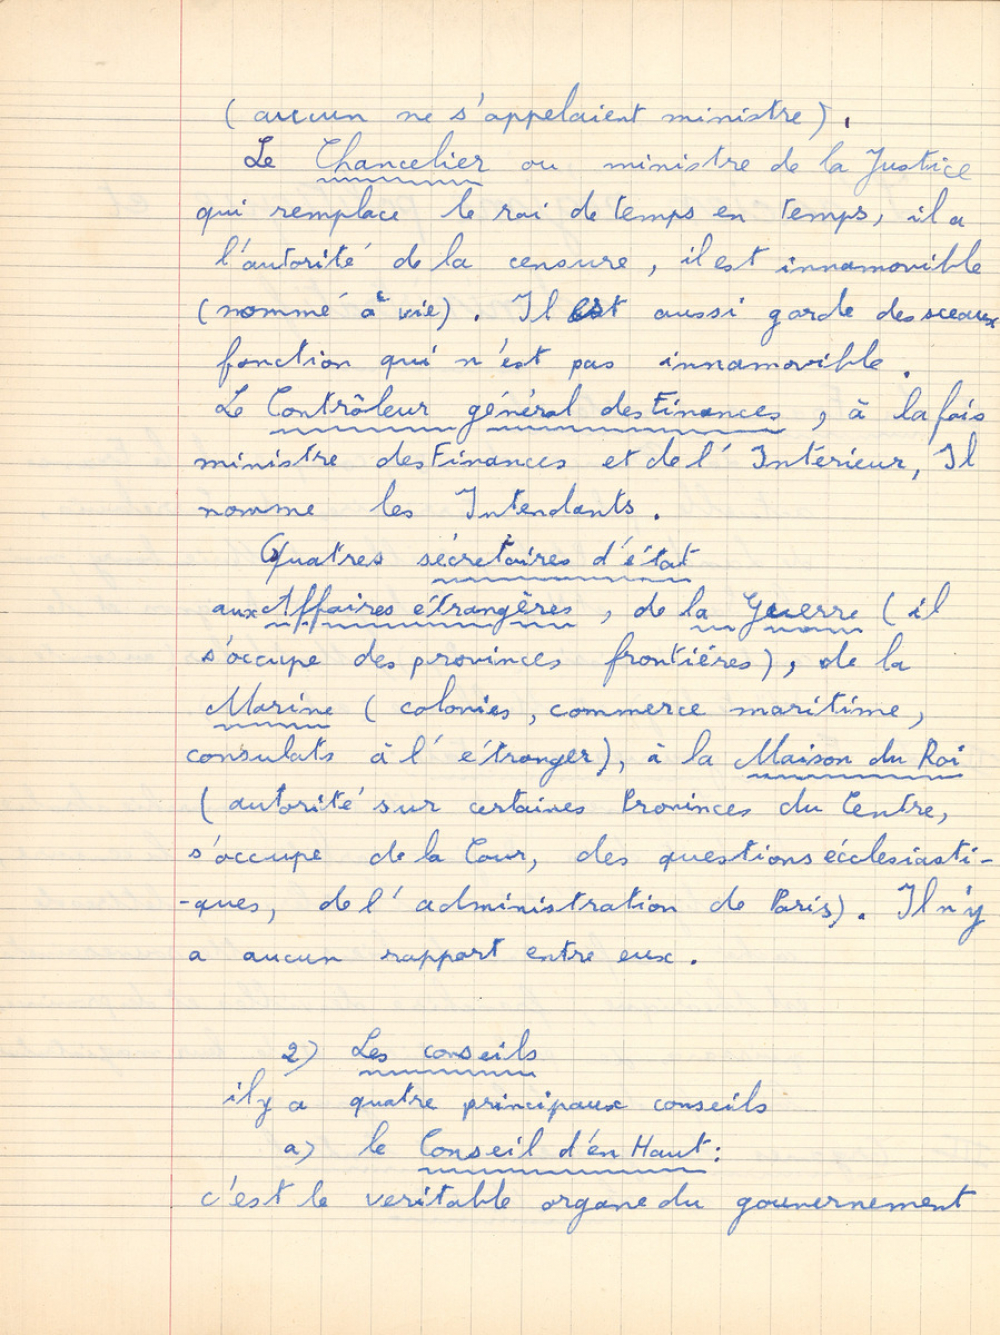 (aucun ne s'appelaient ministre).
Le Chancelier ou ministre de la Justice
qui remplace le roi de temps en temps, il a
l'autorité de la censure, il est innamovible
(nommé à vie). Il est aussi garde des sceaux
fonction qui n'est pas innamovible.
Le Contrôleur général des Finances, à la fois
ministre des Finances et de l'Intérieur, Il
nomme les Intendants.
Quatres sécretaires d'état
aux Affaires étrangères, de la Guerre (il
s'occupe des provinces frontiéres), de la
Marine (colonies, commerce maritime,
consulats à l'étranger), à la Maison du Roi
(autorité sur certaines Provinces du Centre,
s'occupe de la Cour, des questions écclesiasti-
-ques, de l'administration de Paris). Il n'y
a aucun rapport entre eux.
2) Les conseils
il y a quatre principaux conseils
a) le Conseil d'en Haut :
c'est le veritable organe du gouvernement